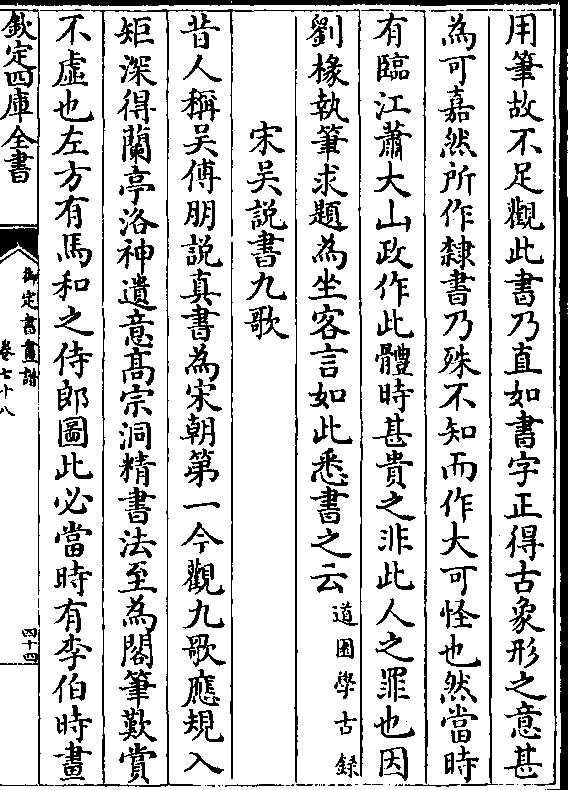 用筆故不足觀此書乃直如書字正得古象形之意甚
為可嘉然所作隸書乃殊不知而作大可怪也然當時
有臨江蕭大山政作此體時甚貴之非此人之罪也因
劉椽執筆求題為坐客言如此悉書之云道園學古録
宋吴説書九歌
昔人稱吴傅朋説真書為宋朝第一今觀九歌應規入
矩深得蘭亭洛神遺意髙宗洞精書法至為閣筆歎賞
不虚也左方有馬和之侍郎圖此必當時有李伯時畫
欽定四庫全書
御定書畫譜
卷七十八
四十四